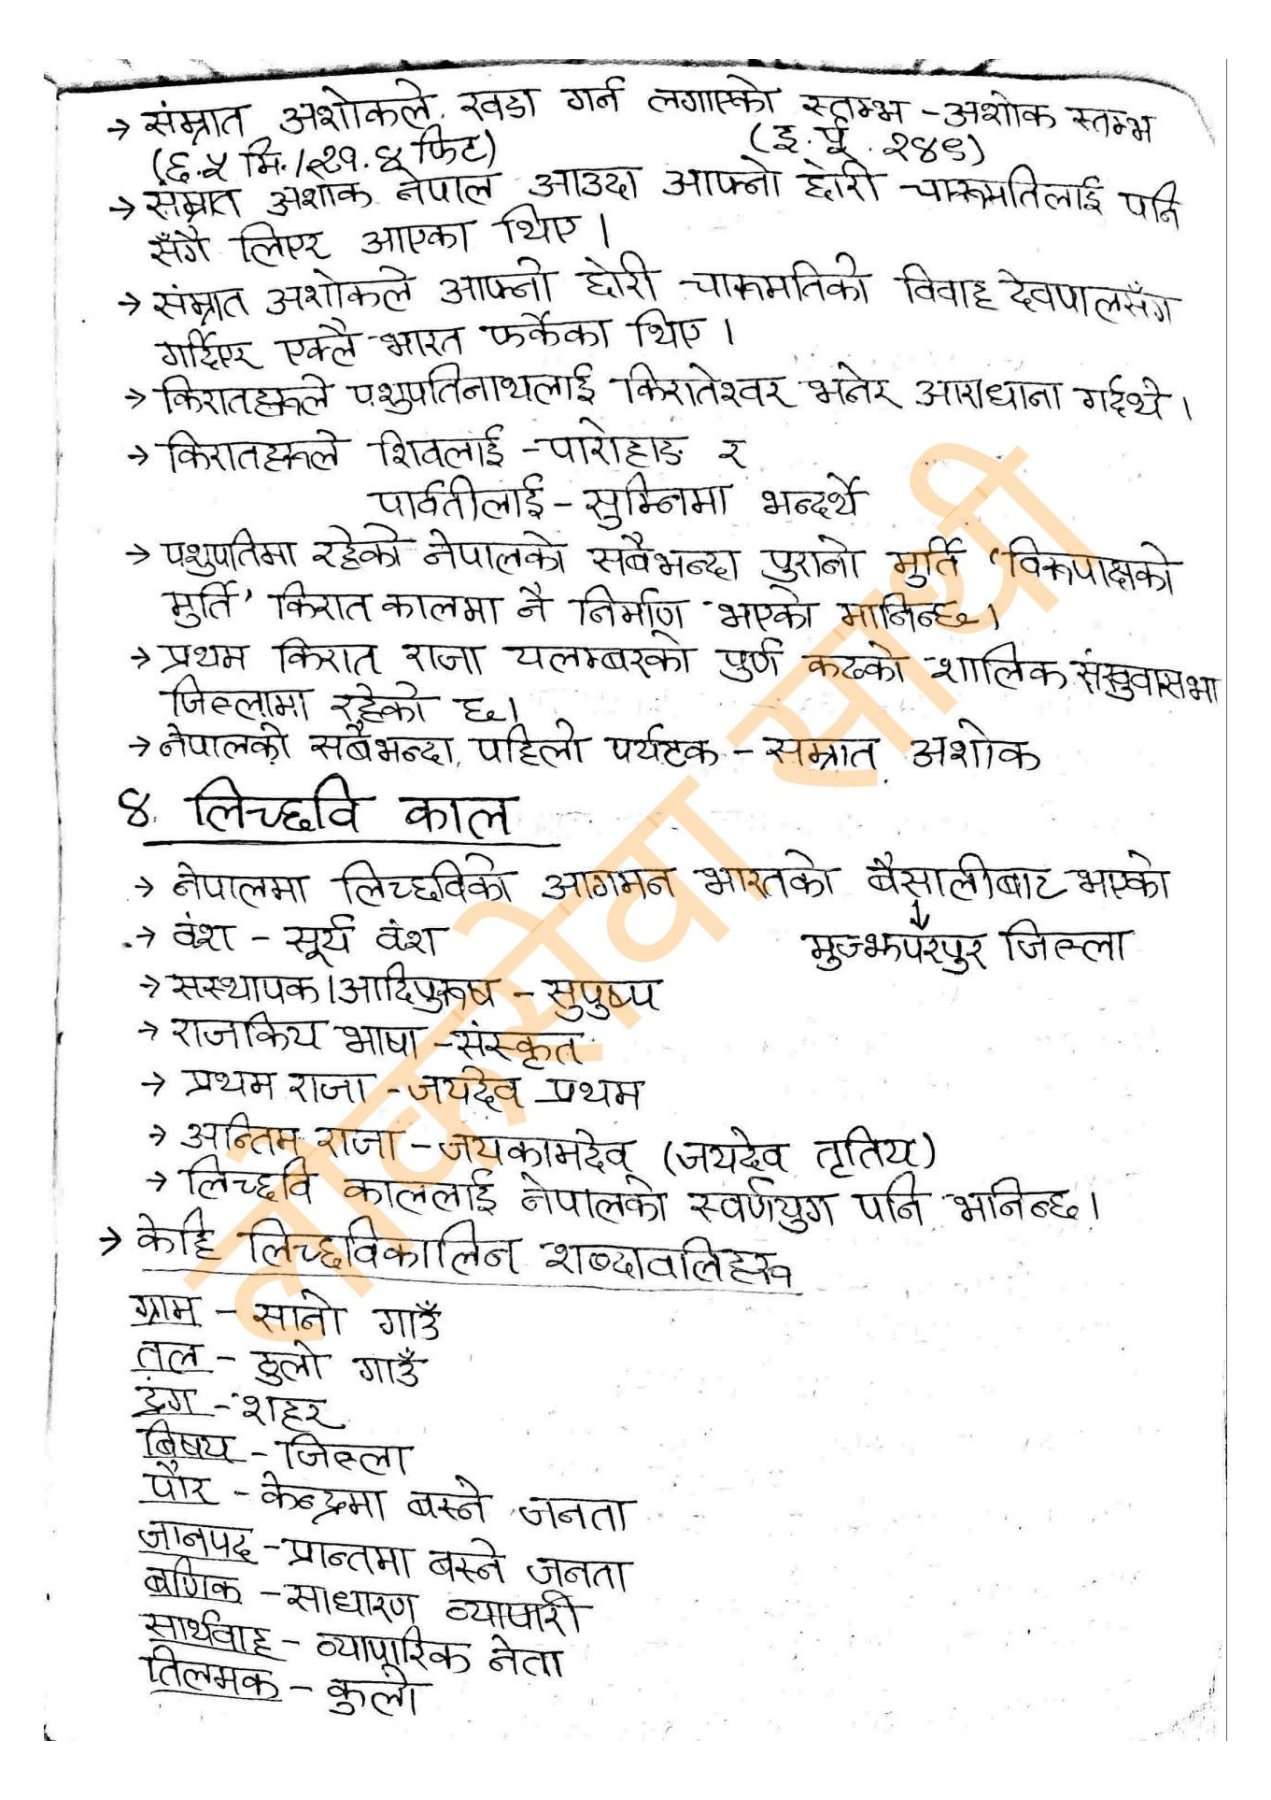 → संम्रात अशोकले खडा गर्न लगाएको स्तम्भ - अशोक स्तम्भ
(६.५ मि./२१.४ फिट) (इ.पू. २४९)
→ संम्रात अशोक नेपाल आउदा आफ्नो छोरी चारूमतिलाई पनि
सँगै लिएर आएका थिए।
→ संम्रात अशोकले आफ्नो छोरी चारूमतिको विवाह देवपालसँग
गर्दिएर एक्लै भारत फर्केका थिए।
→ किरातहरूले पशुपतिनाथलाई किरातेश्वर भनेर आराधाना गर्दथे।
→ किरातहरूले शिवलाई - पारोहाङ र
पार्वतीलाई - सुम्निमा भन्दर्थे
→ पशुपतिमा रहेको नेपालको सबैभन्दा पुरानो मुर्ति 'विरूपाक्षको
मुर्ति' किरात कालमा नै निर्माण भएको मानिन्छ।
→ प्रथम किरात राजा यलम्बरको पुर्ण कदको शालिक संखुवासभा
जिल्लामा रहेको छ।
→ नेपालको सबैभन्दा पहिलो पर्यटक - सम्रात अशोक
४. लिच्छवि काल
→ नेपालमा लिच्छविको आगमन भारतको बैसालीबाट भएको
→ वंश - सूर्य वंश मुज्झफरपुर जिल्ला
→ सस्थापक।आदिपुरूष - सुपुष्प
→ राजकिय भाषा - संस्कृत
→ प्रथम राजा - जयदेव प्रथम
→ अन्तिम राजा - जयकामदेव (जयदेव तृतिय)
→ लिच्छवि काललाई नेपालको स्वर्णयुग पनि भनिन्छ।
→ केहि लिच्छविकालिन शब्दावलिहरू
ग्राम - सानो गाउँ
तल - ठुलो गाउँ
द्रंग - शहर
बिषय - जिल्ला
पौर - केन्द्रमा बस्ने जनता
जानपद - प्रान्तमा बस्ने जनता
बणिक - साधारण व्यापारी
सार्थवाह - व्यापारिक नेता
तिलमक - कुलो
लोकसेवा साथी